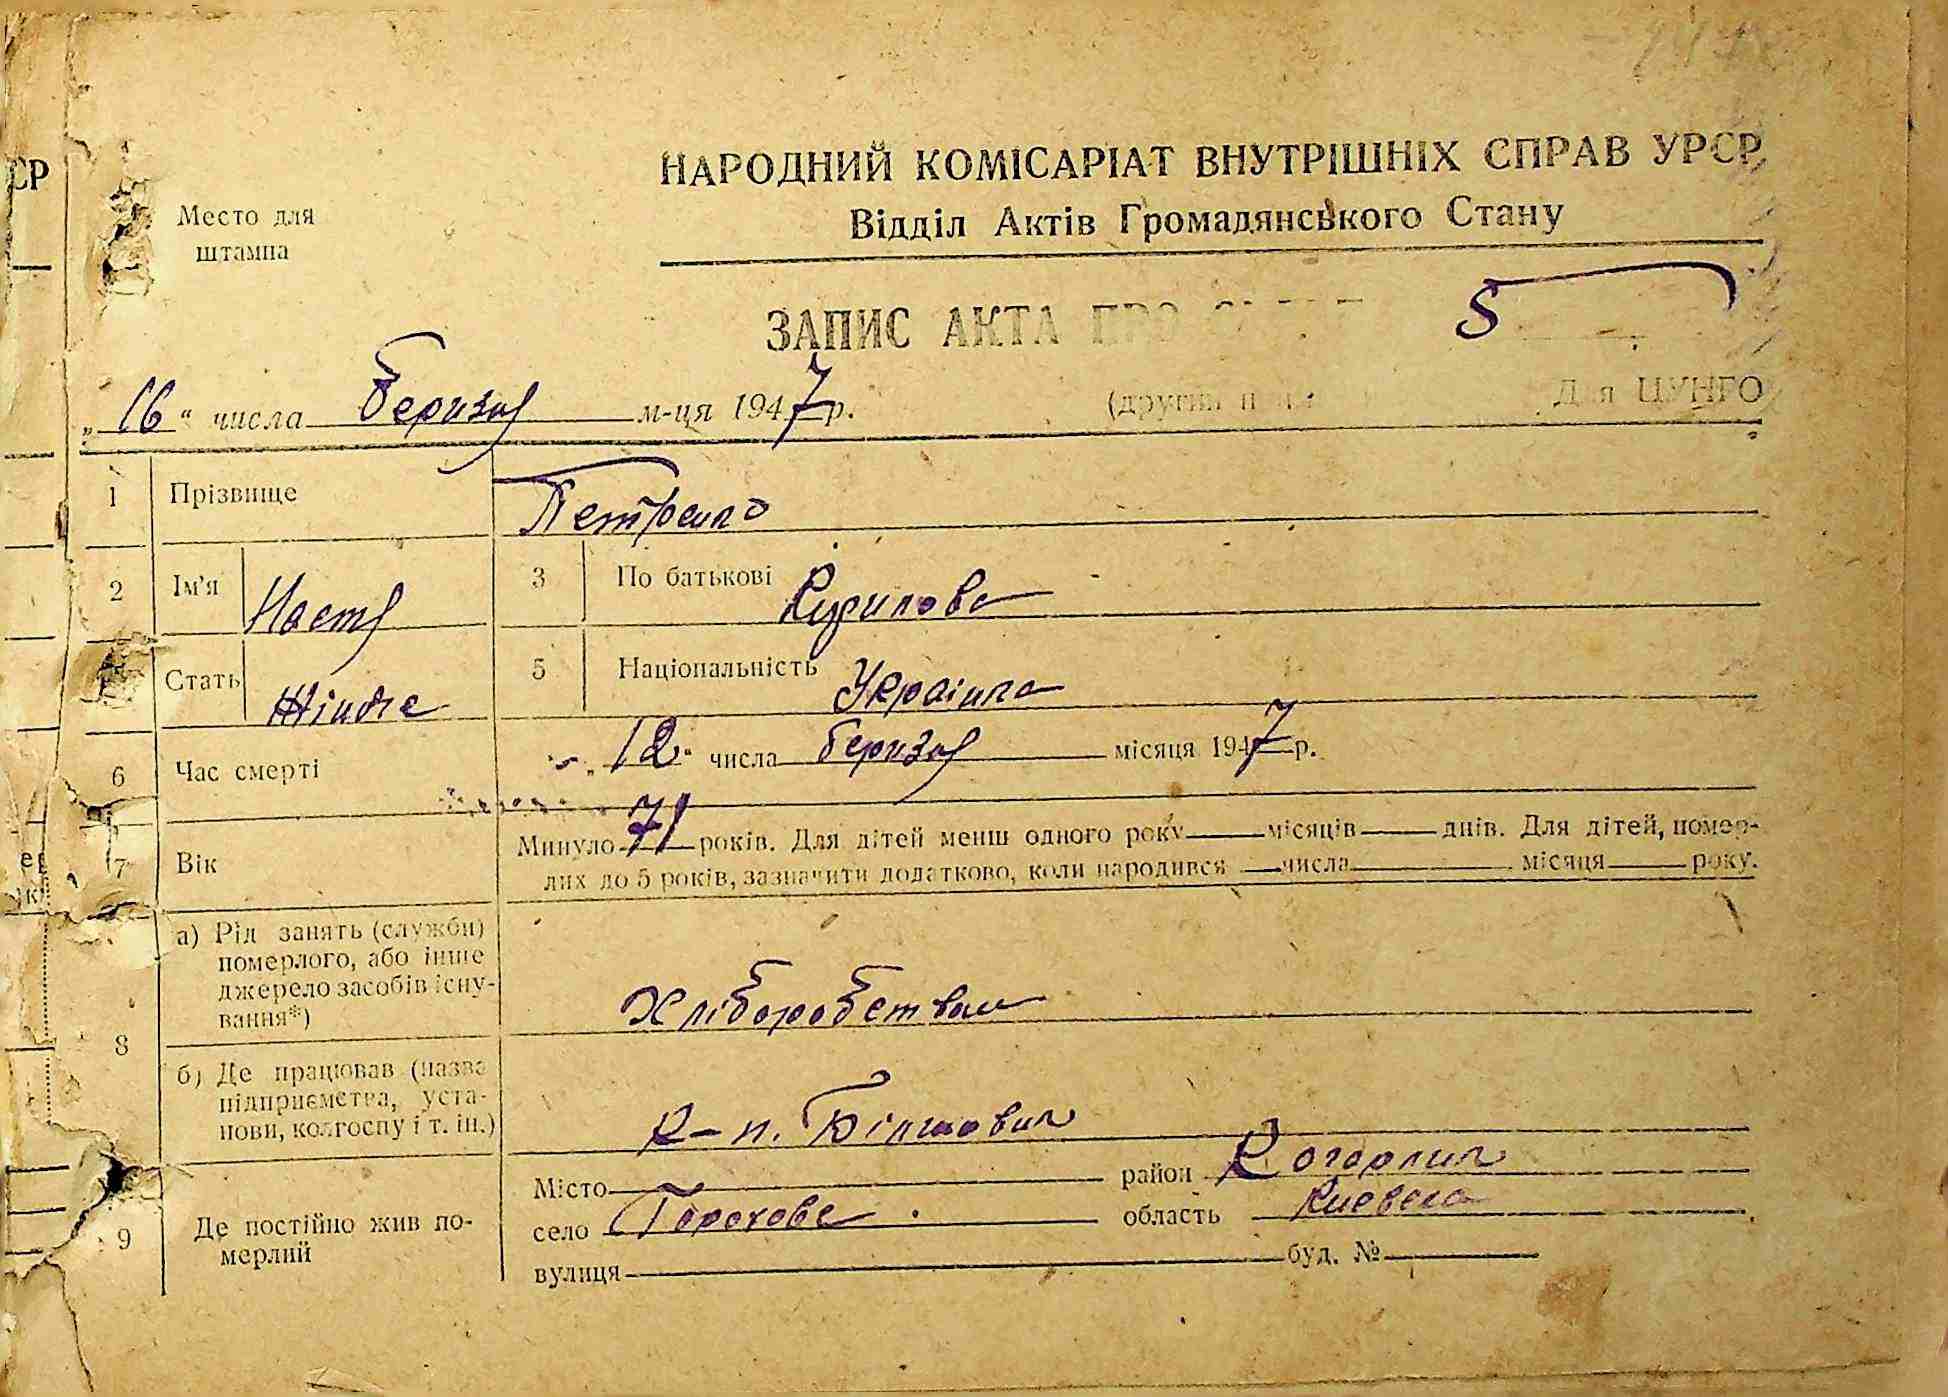 СР
Место для
штампа
НАРОДНИЙ КОМІСАРІАТ ВНУТРІШНІХ СПРАВ УРСР
Відділ Актів Громадянського Стану
ЗАПИС АКТА ПРО 5
„16“ числа березня м-ця 1947 р. (другий Для ЦУНГО
1 Прізвище Петренко
2 Ім'я Настя 3 По батькові Курилова
Стать Жіноче 5 Національність Україна
6 Час смерті „12“ числа березня місяця 1947 р.
7 Вік Минуло 71 років. Для дітей менш одного року місяців днів. Для дітей, помер-
лих до 5 років, зазначити додатково, коли народився числа місяця року.
8 а) Рід занять (служби)
померлого, або інше
джерело засобів існу-
вання*) Хліборобством
б) Де працював (назва
підприємства, уста-
нови, колгоспу і т. ін.) к-п. Більшовик
9 Де постійно жив по-
мерлий
Місто район Кагарлик
село Горохове область Киевска
вулиця буд. №